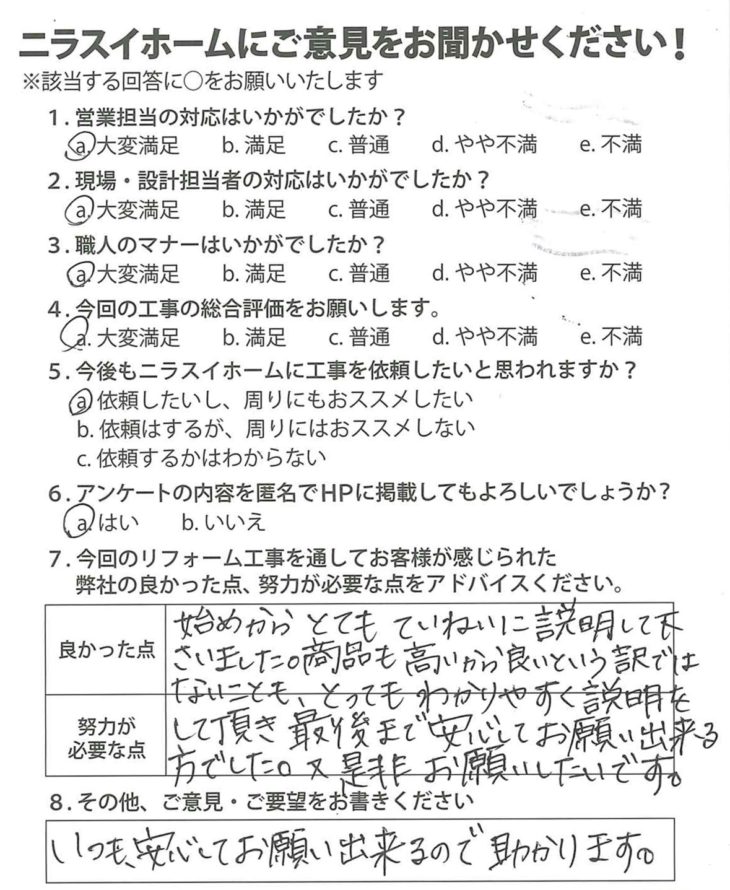 ニラスイホームにご意見をお聞かせください！
※該当する回答に○をお願いいたします
1. 営業担当の対応はいかがでしたか？
a. 大変満足 b. 満足 c. 普通 d. やや不満 e. 不満
2. 現場・設計担当者の対応はいかがでしたか？
a. 大変満足 b. 満足 c. 普通 d. やや不満 e. 不満
3. 職人のマナーはいかがでしたか？
a. 大変満足 b. 満足 c. 普通 d. やや不満 e. 不満
4. 今回の工事の総合評価をお願いします。
a. 大変満足 b. 満足 c. 普通 d. やや不満 e. 不満
5. 今後もニラスイホームに工事を依頼したいと思われますか？
a. 依頼したいし、周りにもおススメしたい
b. 依頼はするが、周りにはおススメしない
c. 依頼するかはわからない
6. アンケートの内容を匿名でHPに掲載してもよろしいでしょうか？
a. はい b. いいえ
7. 今回のリフォーム工事を通してお客様が感じられた
弊社の良かった点、努力が必要な点をアドバイスください。
良かった点
始めから とても ていねいに 説明して下
さいました。商品も 高いから良いという 訳では
ないことも、とっても わかりやすく 説明を
努力が
必要な点
して頂き 最後まで 安心して お願い出来る
方でした。又 是非 お願いしたいです。
8. その他、ご意見・ご要望をお書きください
いつも、安心して お願い出来るので 助かります。